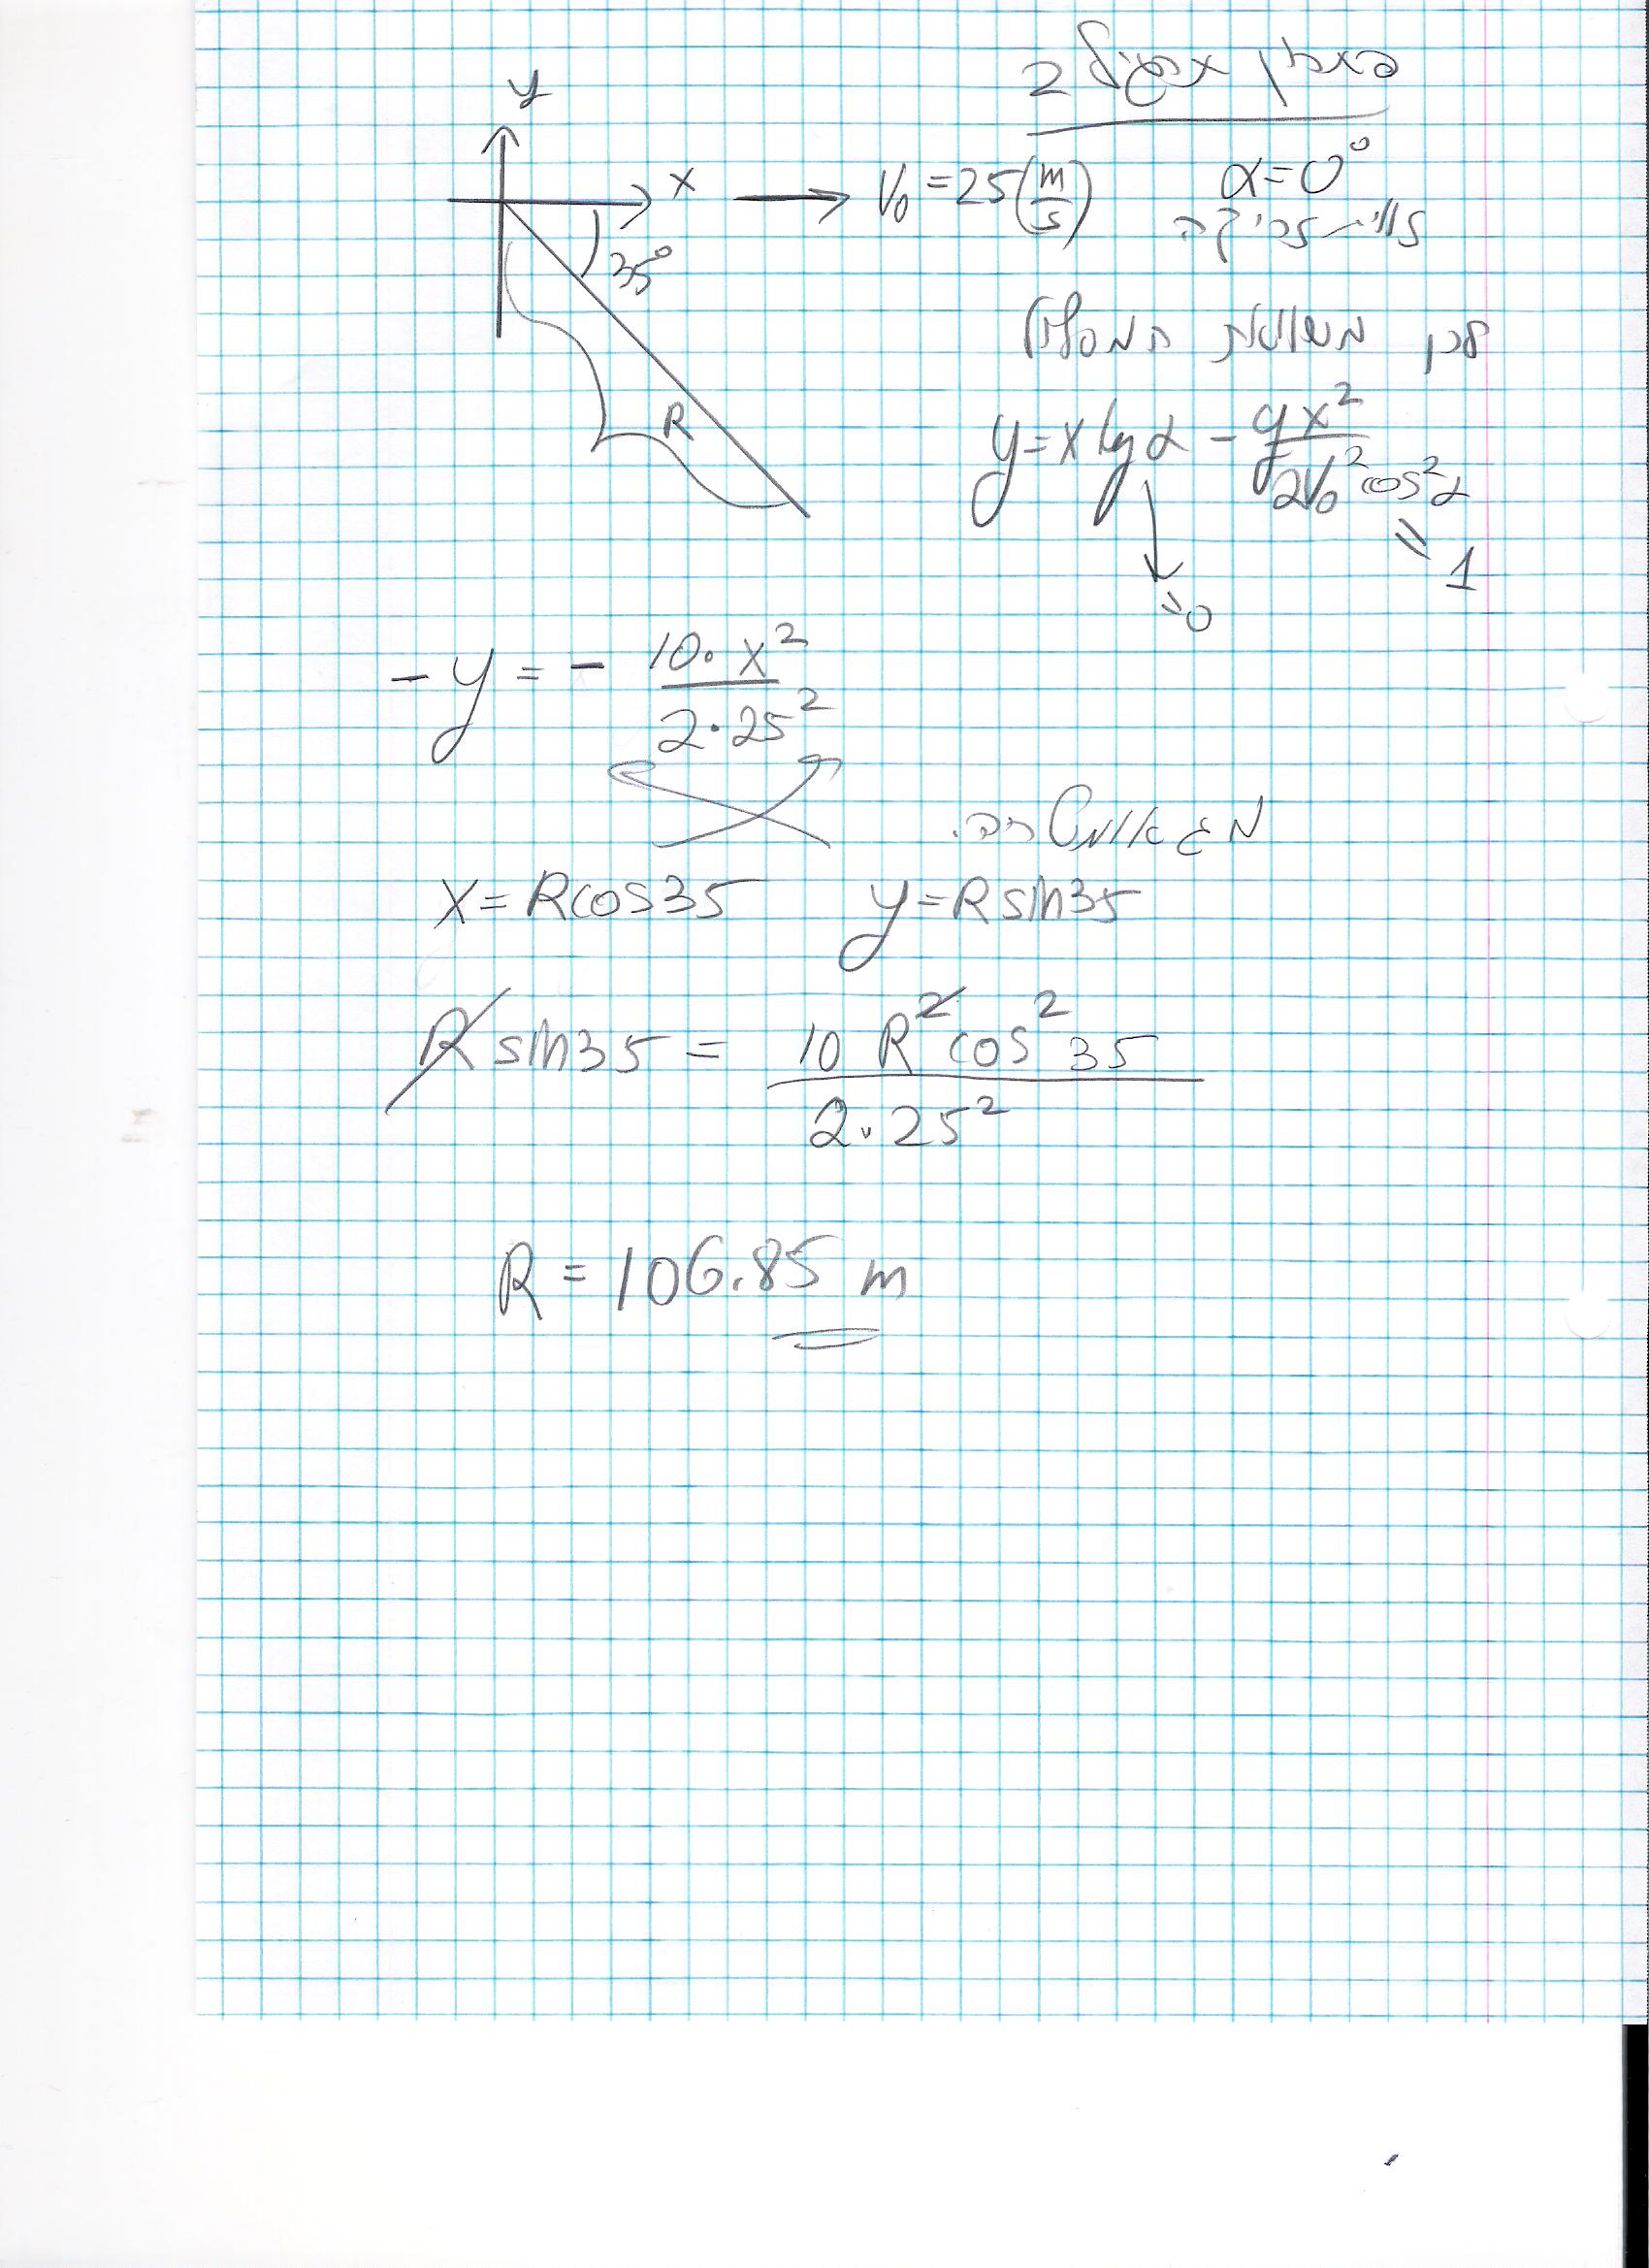 פתרון תרגיל 2
y
x → V₀ = 25 (m/s) α = 0°
זווית זריקה
35°
לכן משוואת המסלול
R
y = x tg α - gx² / 2V₀² cos² α
= 0
= 1
-y = - 10·x² / 2·25²
מגאומטריה.
x = R cos 35 y = R sin 35
R sin 35 = 10 R² cos² 35 / 2·25²
R = 106.85 m